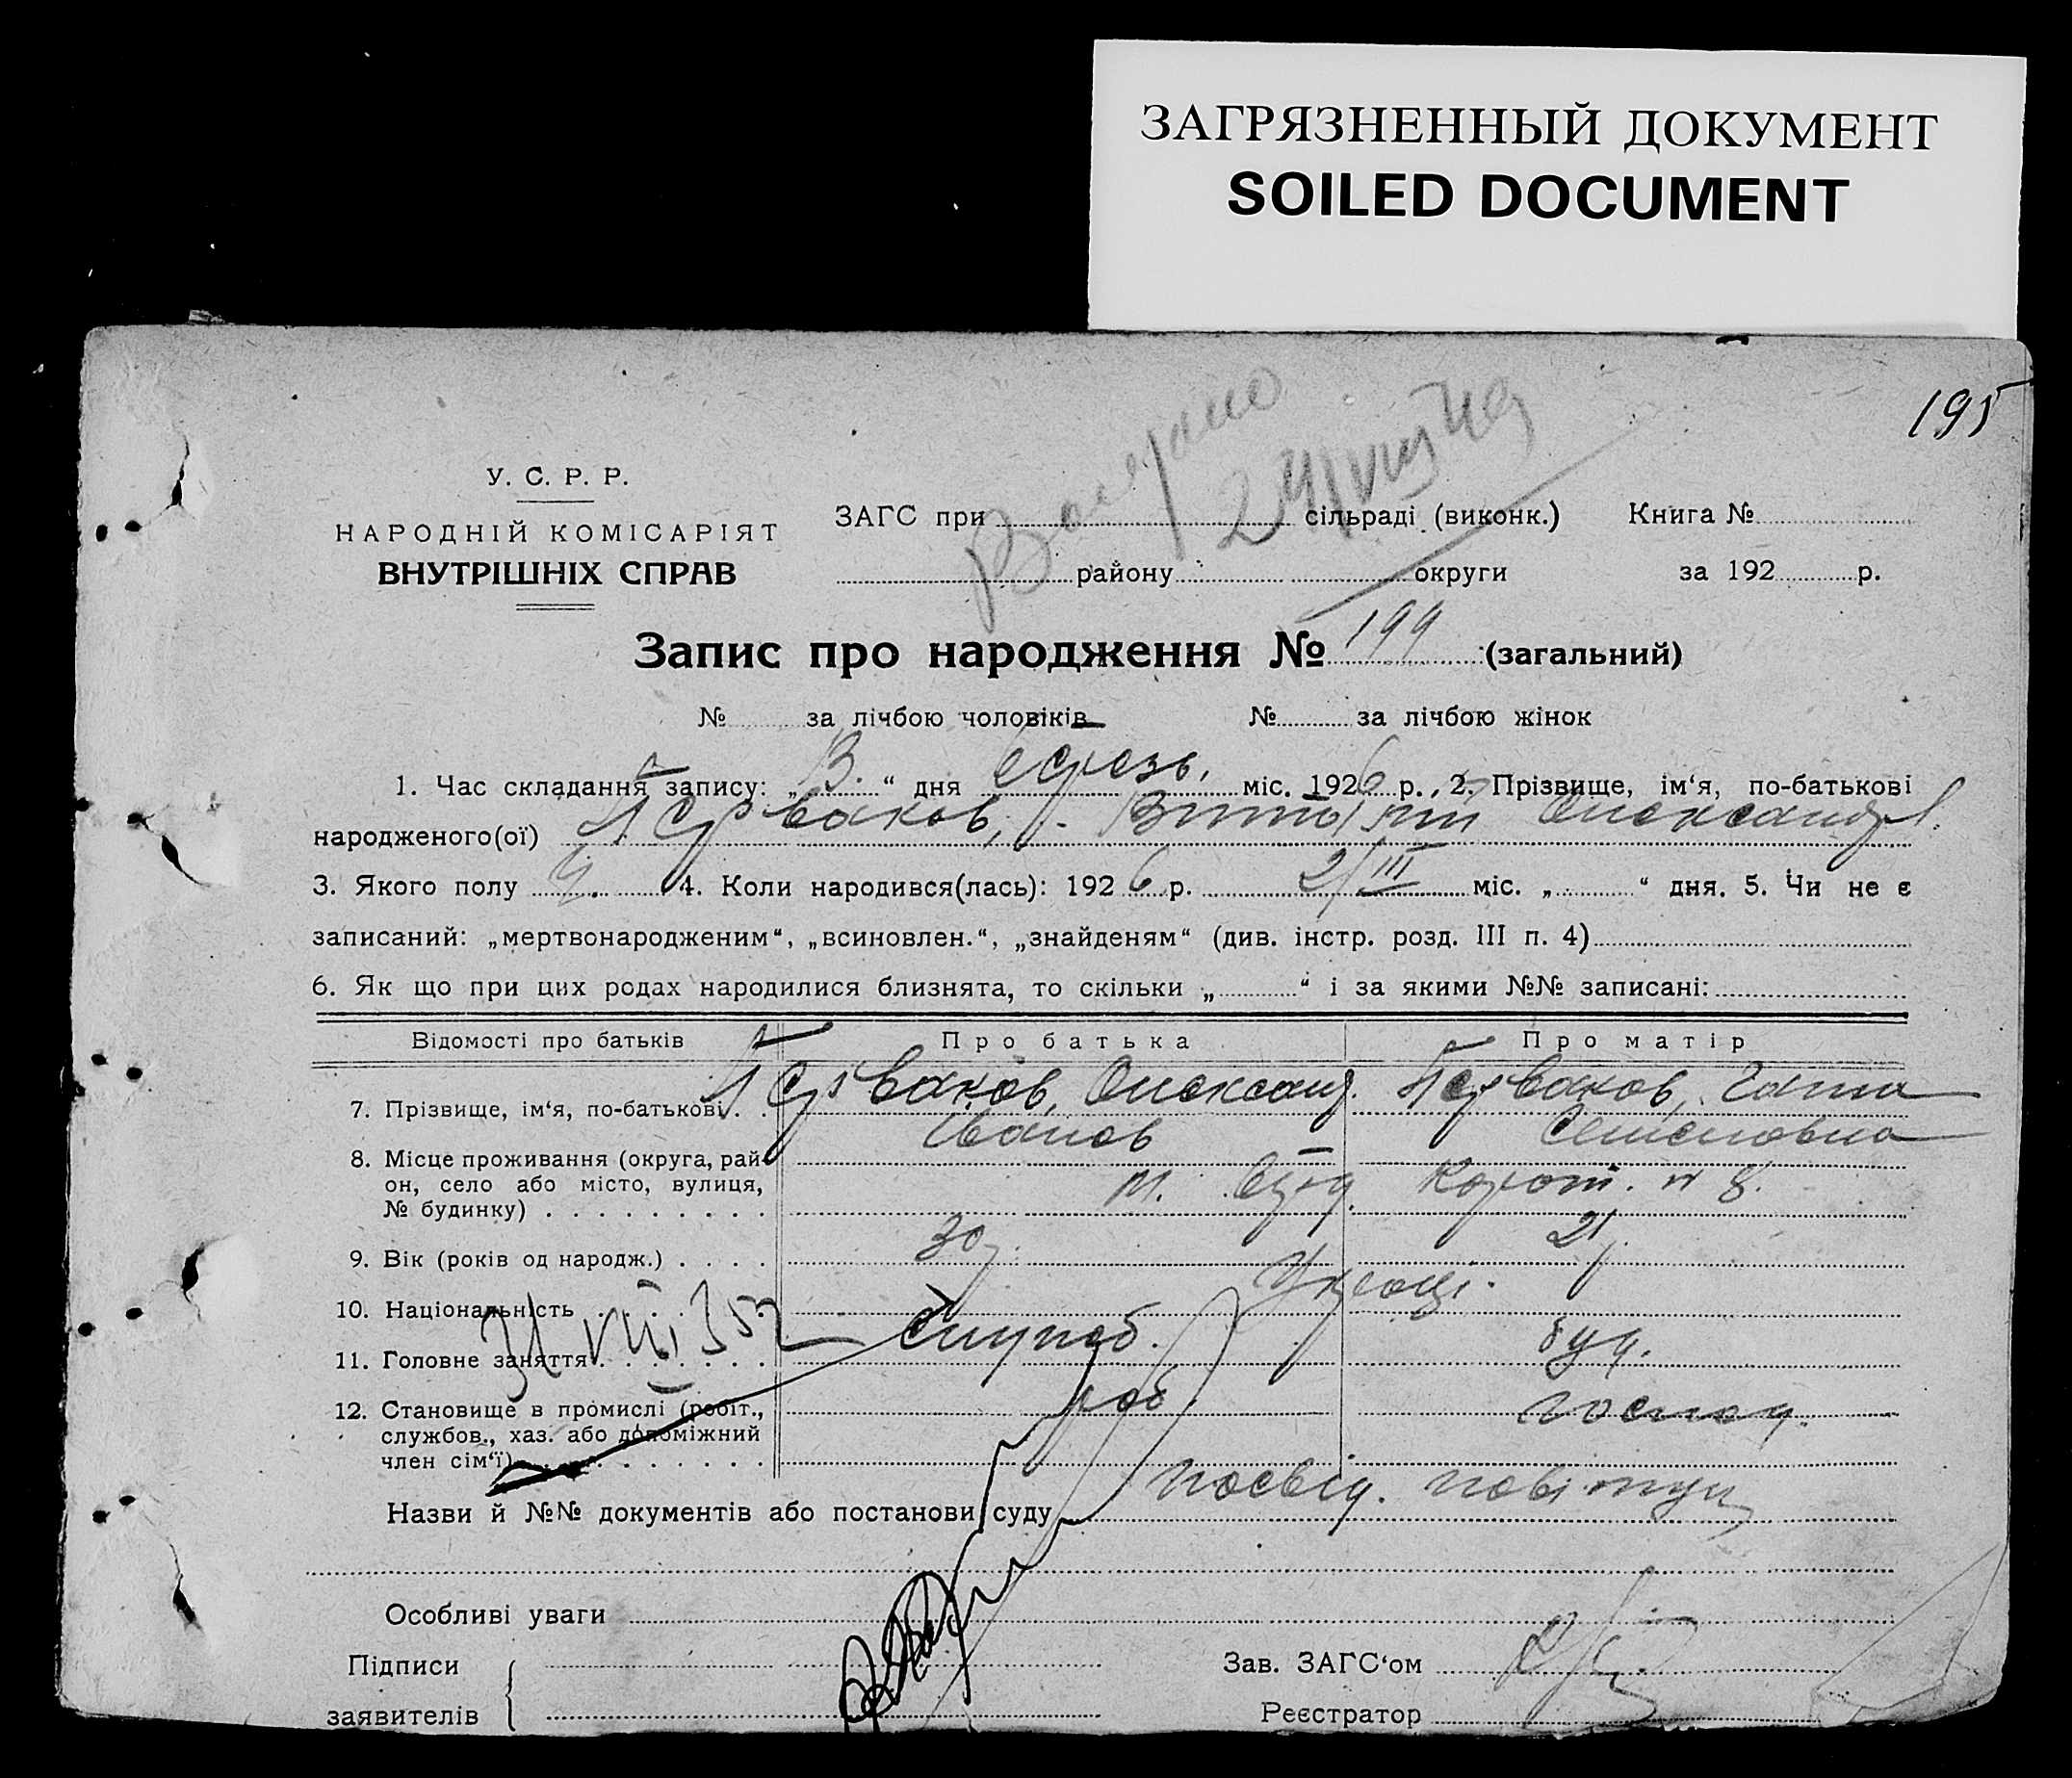 ЗАГРЯЗНЕННЫЙ ДОКУМЕНТ
SOILED DOCUMENT
195
У. С. Р. Р.
НАРОДНІЙ КОМІСАРІЯТ
ВНУТРІШНІХ СПРАВ
ЗАГС при сільраді (виконк.) Книга №
району округи за 192 р.
Запис про народження № 199 (загальний)
№ за лічбою чоловіків № за лічбою жінок
1. Час складання запису: „ 13. “ дня березь, міс. 1926 р., 2. Прізвище, ім‘я, по-батькові
народженого(ої) Перваков, Олександ.
3. Якого полу Ч. 4. Коли народився(лась): 192 6 р. 2/III міс. „ “ дня. 5. Чи не є
записаний: „мертвонародженим“, „всиновлен.“, „знайденям“ (див. інстр. розд. III п. 4)
6. Як що при цих родах народилися близнята, то скільки „ “ і за якими №№ записані:
Відомості про батьків Про батька Про матір
7. Прізвище, ім‘я, по-батькові Перваков, Олександ. Перваков,
Іванов Семеновна
8. Місце проживання (округа, рай-
он, село або місто, вулиця,
№ будинку) м. Корот. № 8.
9. Вік (років од народж.) 30 21
10. Національність
11. Головне заняття
12. Становище в промислі (робіт., роб. господ.
службов., хаз. або допоміжний
член сім‘ї)
Назви й №№ документів або постанови суду посвід. повітух
Особливі уваги
Підписи Зав. ЗАГС‘ом
заявителів Реєстратор